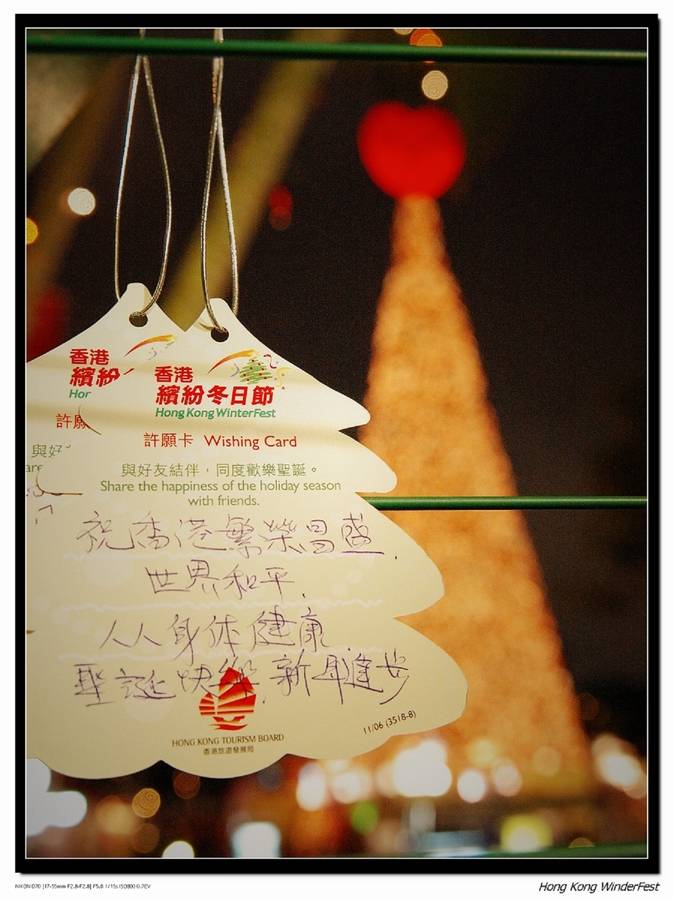 香港
繽紛
Hor
許願
與好
香港
繽紛冬日節
Hong Kong WinterFest
許願卡 Wishing Card
與好友結伴，同度歡樂聖誕。
Share the happiness of the holiday season
with friends.
祝香港繁榮昌盛.
世界和平.
人人身体健康
聖誕快樂.新年進步
HONG KONG TOURISM BOARD
香港旅遊發展局
11/06 (3518-8)
NIKON D70 [17-55mm F2.8-F2.8] F5.0 1/15s ISO800 0.7EV
Hong Kong WinderFest